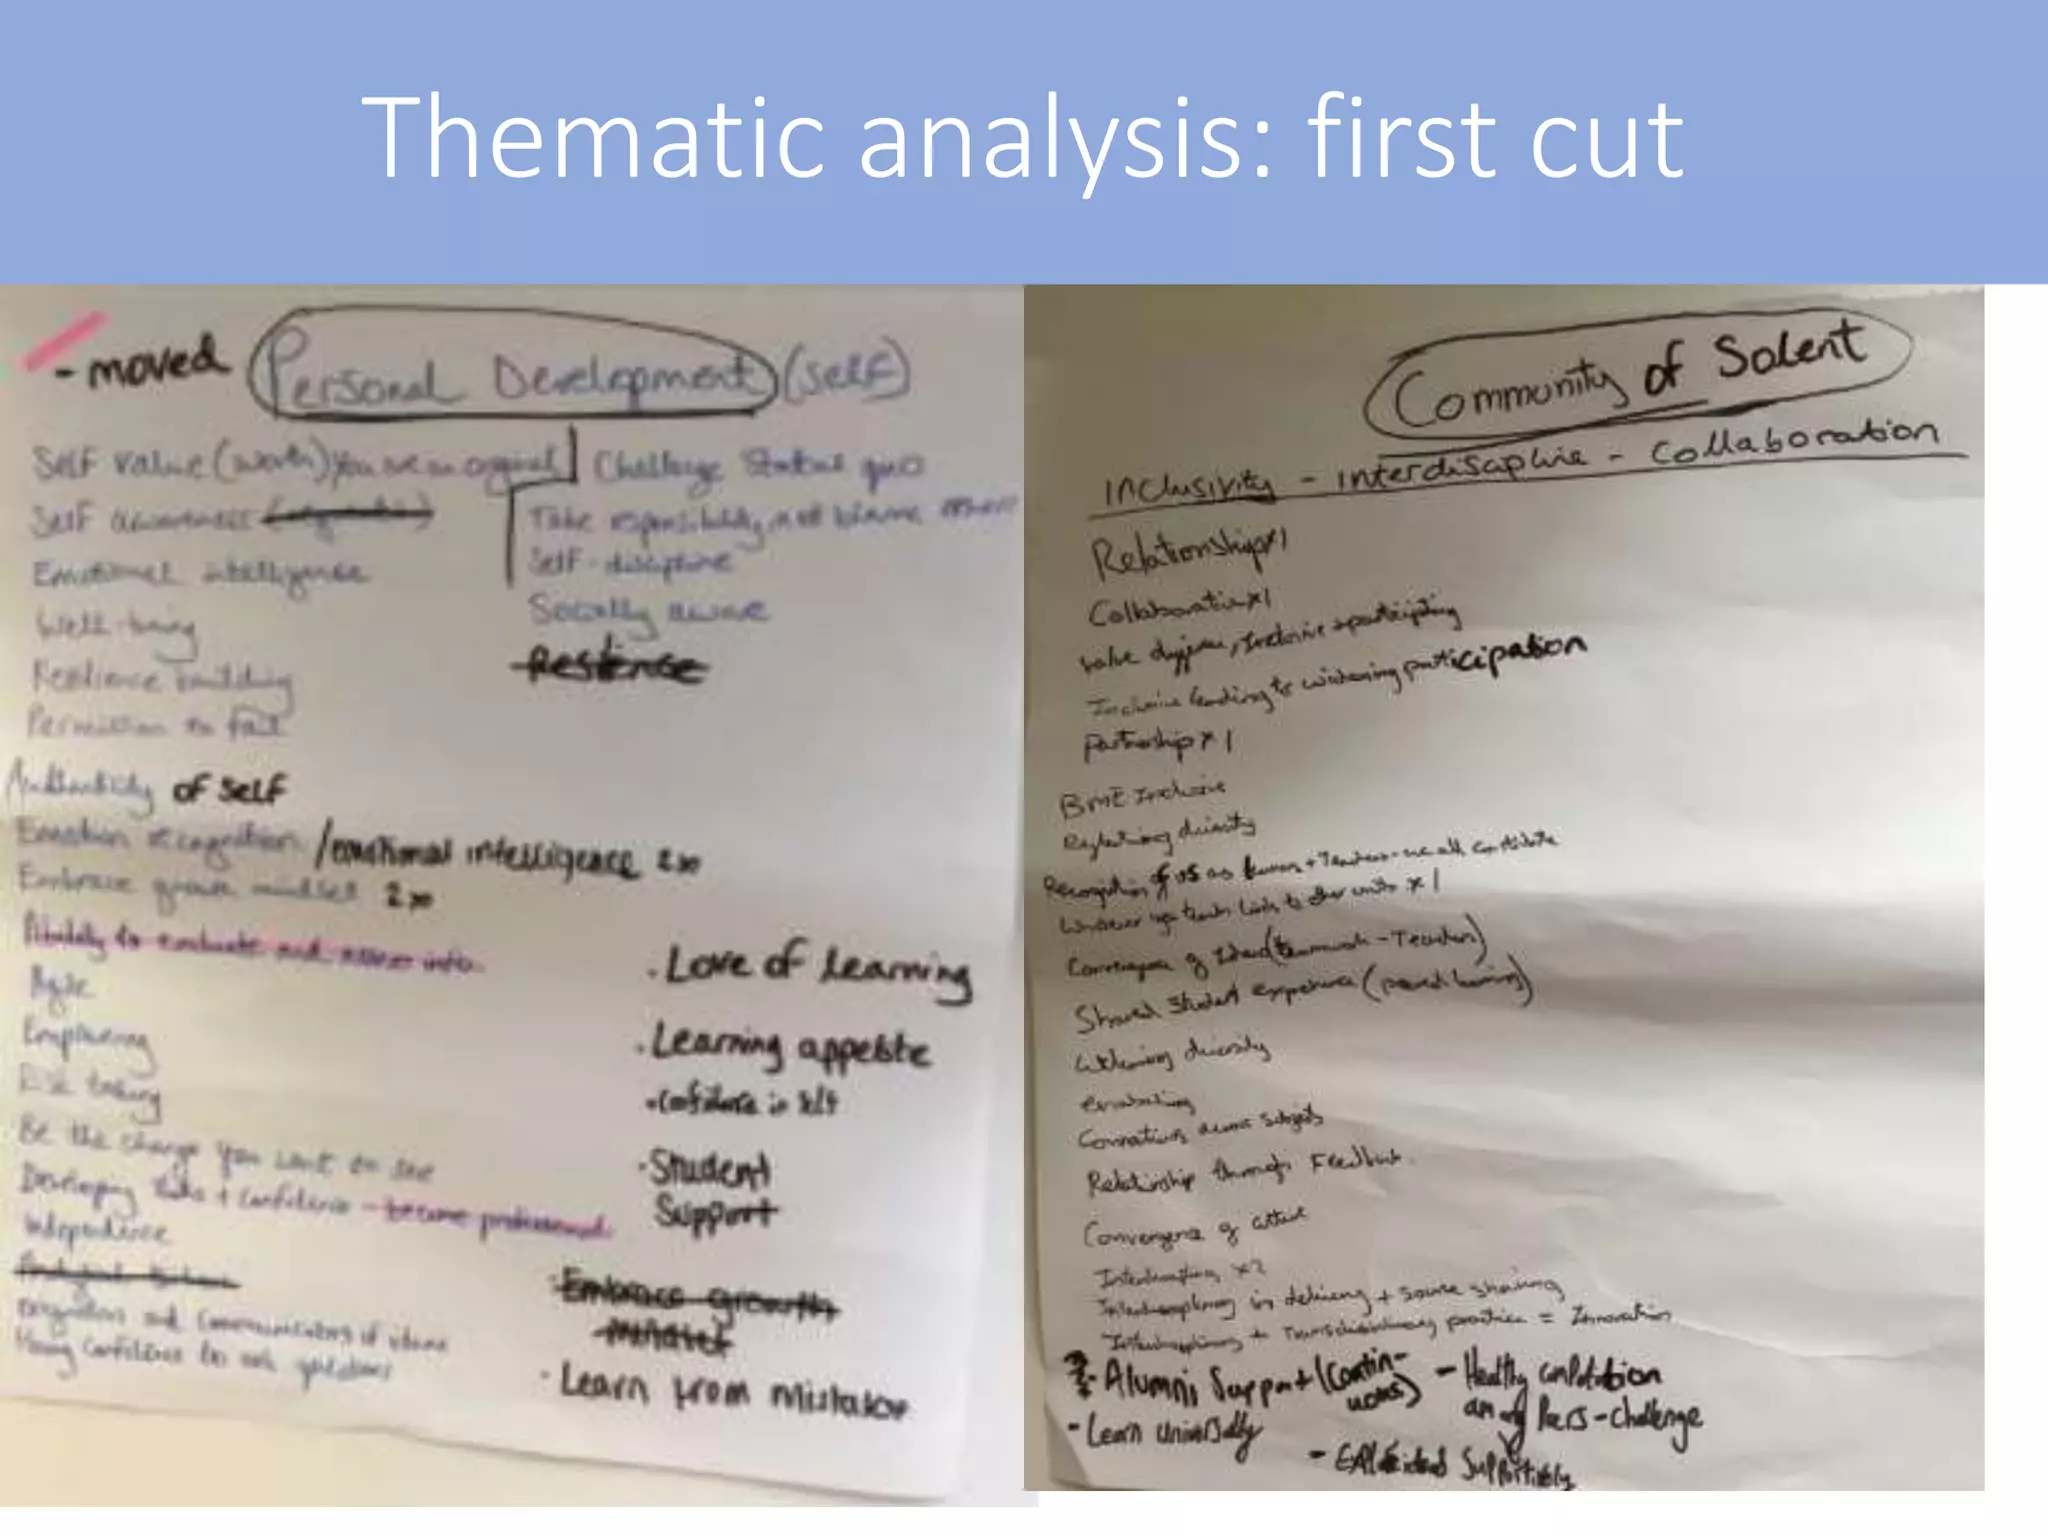 Thematic analysis: first cut
- moved Personal Development (self)
Self value (worth) You are an original
Self awareness
Emotional intelligence
Well-being
Resilience building
Permission to fail
Challenge Status quo
Take responsibility, not blame others
Self-discipline
Socially aware
Authenticity of self
Emotion recognition /emotional intelligence 2x
Embrace growth mindset 2x
to evaluate and assess info
Agile
Empowering
Risk taking
Be the change you want to see
Developing + confidence - become professional
Independence
and communicators of ideas
confidence to ask questions
· Love of Learning
· Learning appetite
· confidence in self
· Student
Support
· Embrace growth
mindset
· Learn from mistakes
Community of Solent
Inclusivity - interdiscipline - Collaboration
Relationship x1
Collaboration x1
Value , Inclusive + participating
Inclusive leading to widening participation
Partnership x 1
BME Inclusive
diversity
Recognition of us as human + Teachers - we all contribute
Whatever you teach links to other units x 1
Convergence of (teamwork - Teachers)
Shared Student experience ( learning)
diversity
enabling
Connections across subjects
Relationship through Feedback.
Convergence of
x2
in delivery + sharing
+ Transdisciplinary practice = Innovation
- Alumni Support (Contin-
uous)
- Learn Universally
- Healthy
among Peers - challenge
- Supportively